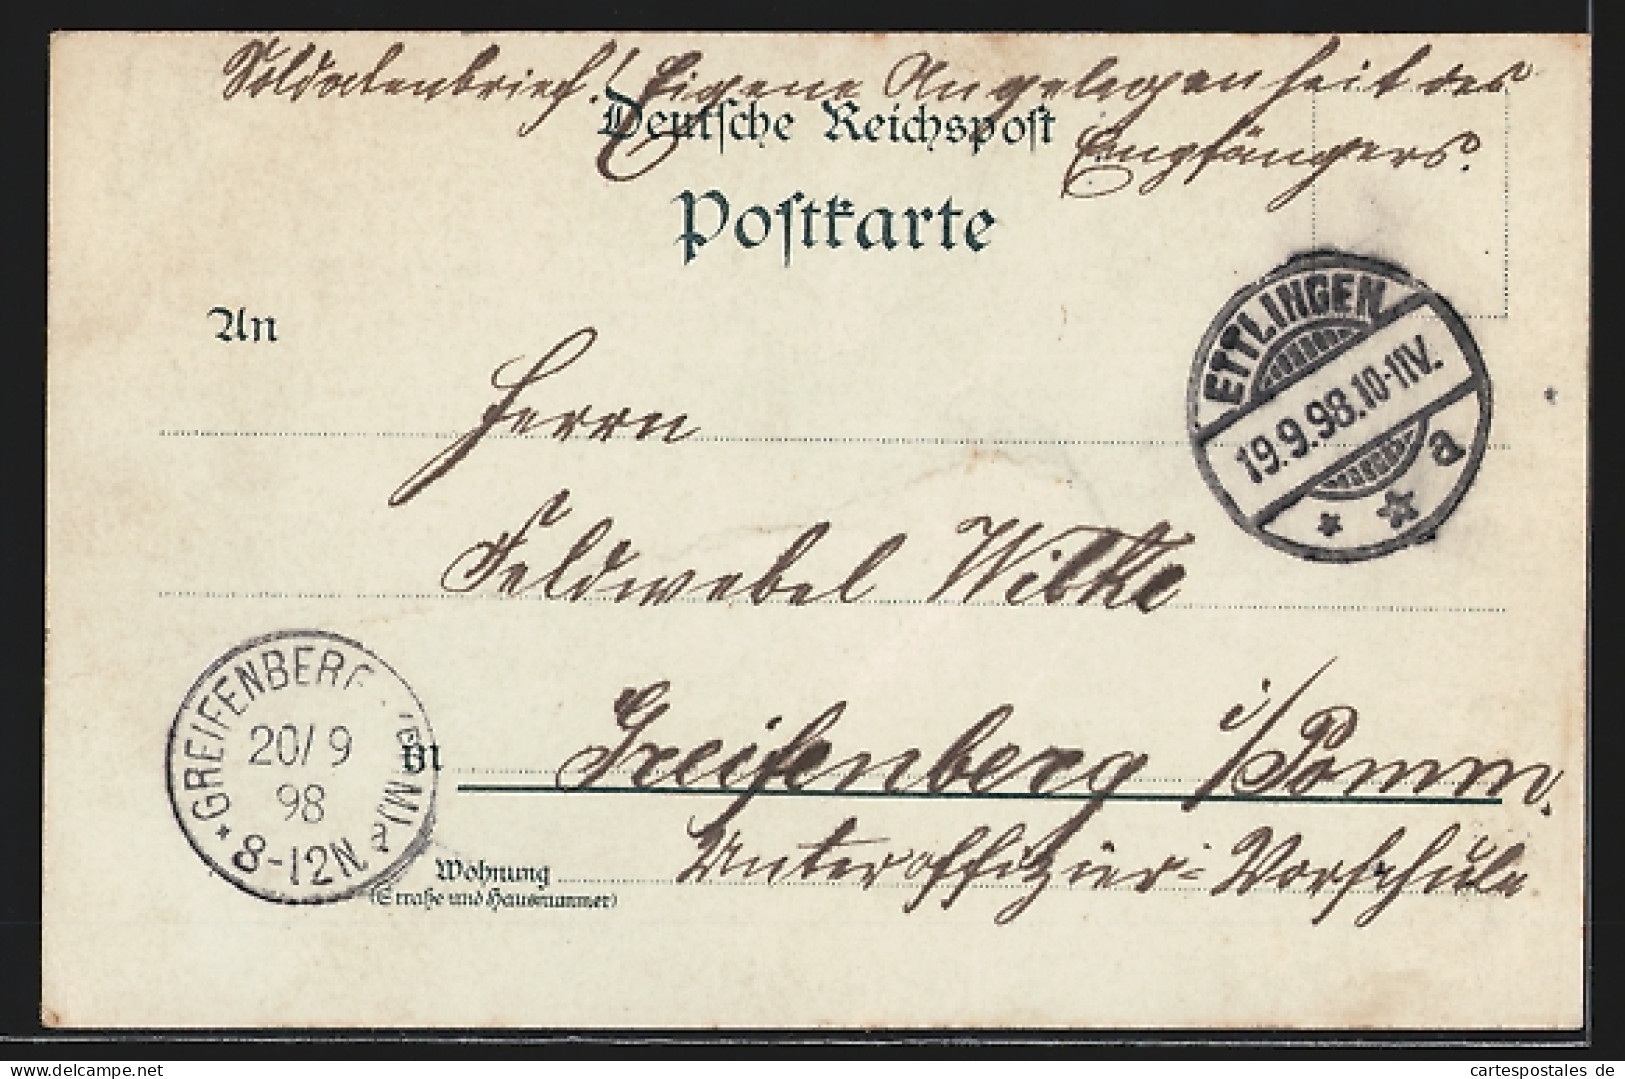 Soldatenbrief! Eigene Angelegenheit des
Empfängers.
Deutsche Reichspost
Postkarte
ETTLINGEN
19.9.98.10-11V.
a
An
Herrn
Feldwebel Wilke
GREIFENBERG
20/9
98
8-12N
in Greifenberg i/Pomm.
Unteroffizier-Vorschule
Wohnung
(Straße und Hausnummer)
cartespostales de